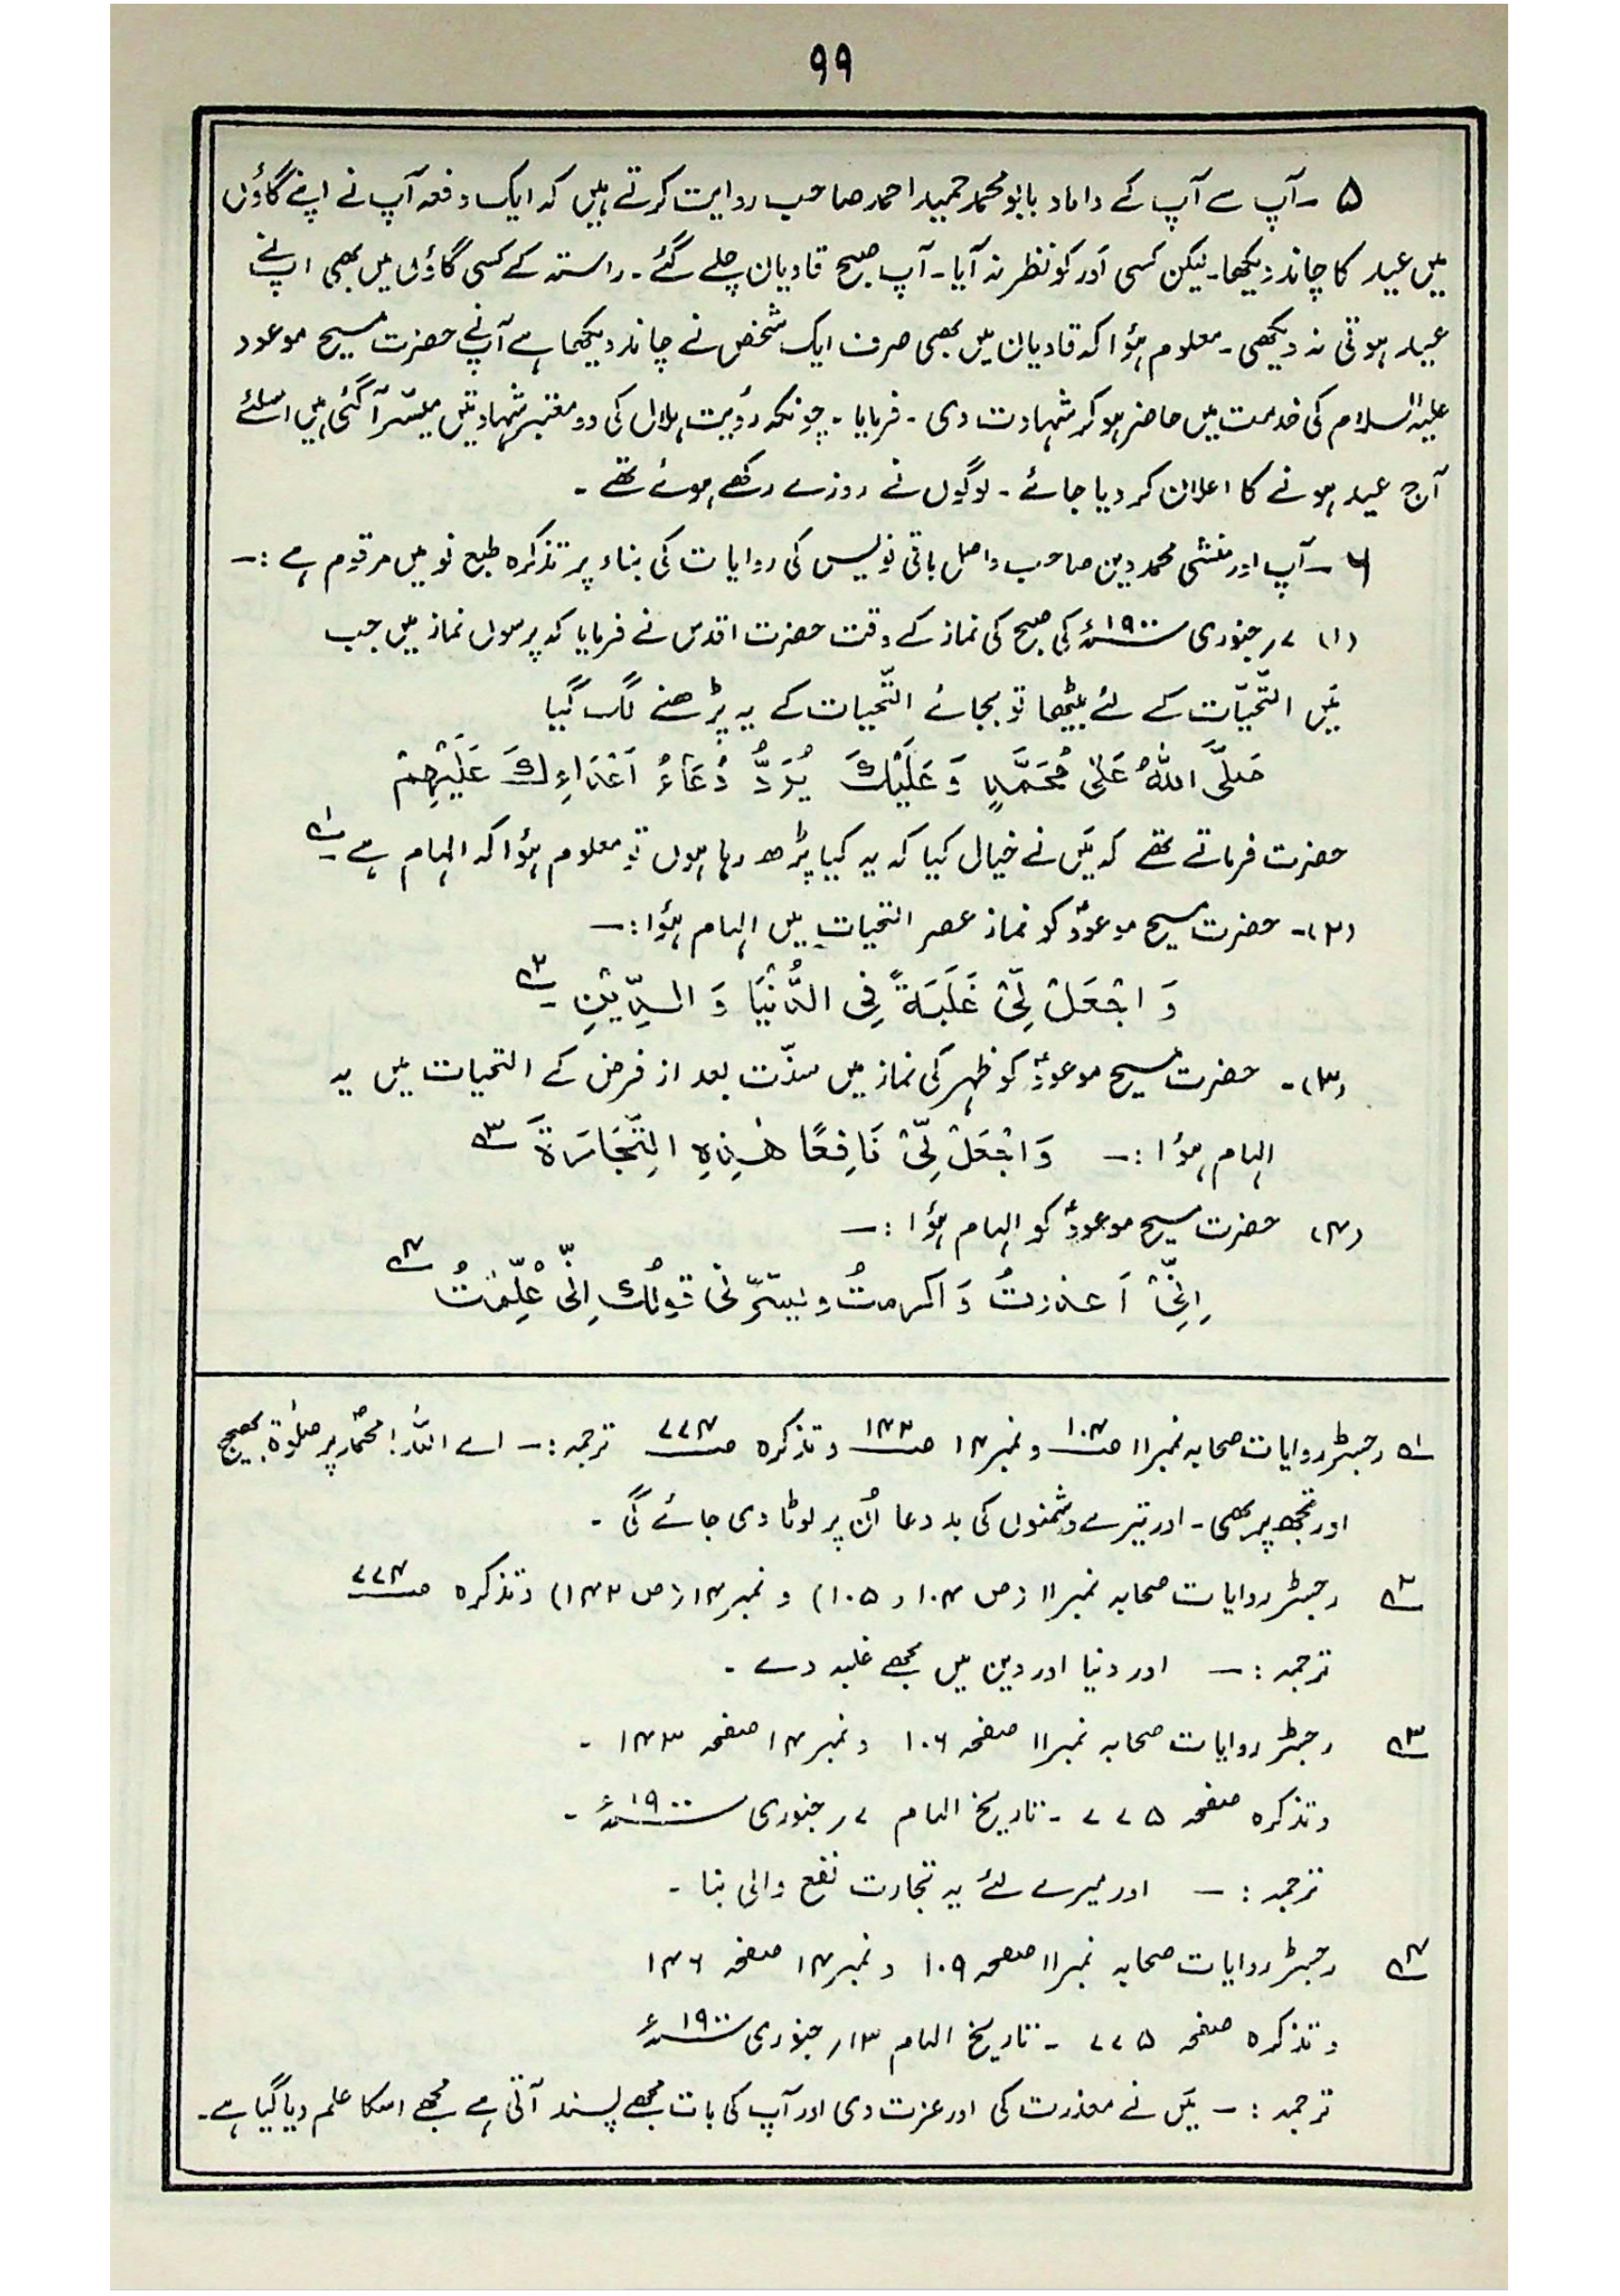 ۹۹
۵ ۔ آپ سے آپ کے داماد بابو محمد حمید احمد صاحب روایت کرتے ہیں کہ ایک دفعہ آپ نے اپنے گاؤں
میں عید کا چاند دیکھا۔ لیکن کسی اَور کو نظر نہ آیا۔ آپ صبح قادیان چلے گئے۔ راستہ کے کسی گاؤں میں بھی آپ نے
عید ہوتی نہ دیکھی۔ معلوم ہؤا کہ قادیان میں بھی صرف ایک شخص نے چاند دیکھا ہے آپ نے حضرت مسیح موعود
علیہ السلام کی خدمت میں حاضر ہو کر شہادت دی ۔ فرمایا ۔ چونکہ رؤیت ہلال کی دو معتبر شہادتیں میسّر آگئی ہیں اسلئے
آج عید ہونے کا اعلان کر دیا جائے ۔ لوگوں نے روزے رکھے ہوئے تھے ۔
۶ ۔ آپ اور منشی محمد دین صاحب واصل باقی نویس کی روایات کی بناء پر تذکرہ طبع نو میں مرقوم ہے :۔
(۱) ۷ر جنوری ۱۹۰۰ء کی صبح کی نماز کے وقت حضرت اقدس نے فرمایا کہ پرسوں نماز میں جب
مَیں التَّحیّات کے لئے بیٹھا تو بجائے التَّحیات کے یہ پڑھنے لگ گیا
صَلَّی اللّٰہُ عَلٰی مُحَمَّدٍ وَّ عَلَیْكَ یُرَدُّ دُعَآءُ اَعْدَاءِكَ عَلَیْھِمْ
حضرت فرماتے تھے کہ مَیں نے خیال کیا کہ یہ کیا پڑھ رہا ہوں تو معلوم ہؤا کہ الہام ہے ؎۱
(۲)۔ حضرت مسیح موعودؑ کو نماز عصر التحیات میں الہام ہؤا :۔
وَ اجْعَلْ لِّیْ غَلَبَةً فِی الدُّنْیَا وَ الدِّیْنِ ؎۲
(۳)۔ حضرت مسیح موعودؑ کو ظہر کی نماز میں سنّت بعد از فرض کے التحیات میں یہ
الہام ہؤا :۔ وَاجْعَلْ لِّیْ نَافِعًا ھٰذِہِ التِّجَارَةَ ؎۳
(۴) حضرت مسیح موعودؑ کو الہام ہؤا :۔
اِنِّیْ اَعذرتُ وَ اکرمتُ و یَسُرُّنی قولُك اِنّی عُلِّمْتُ ؎۴
؎۱ رجسٹر روایات صحابہ نمبر ۱۱ صـ۱۰۴ و نمبر ۱۴ صـ۱۴۳ و تذکرہ صـ۷۷۴ ترجمہ :۔ اے اللہ! محمدؐ پر صلوٰۃ بھیج
اور تجھ پر بھی۔ اور تیرے دشمنوں کی بد دعا اُن پر لوٹا دی جائے گی ۔
؎۲ رجسٹر روایات صحابہ نمبر ۱۱ (ص ۱۰۴ و ۱۰۵) و نمبر ۱۴ (ص ۱۴۲) و تذکرہ صـ۷۷۴
ترجمہ :۔ اور دنیا اور دین میں مجھے غلبہ دے ۔
؎۳ رجسٹر روایات صحابہ نمبر ۱۱ صفحہ ۱۰۶ و نمبر ۱۴ صفحہ ۱۴۳ ۔
و تذکرہ صفحہ ۷۷۵ ۔ تاریخ الہام ۷ر جنوری ۱۹۰۰ء ۔
ترجمہ :۔ اور میرے لئے یہ تجارت نفع والی بنا ۔
؎۴ رجسٹر روایات صحابہ نمبر ۱۱ صفحہ ۱۰۹ و نمبر ۱۴ صفحہ ۱۴۶
و تذکرہ صفحہ ۷۷۵ ۔ تاریخ الہام ۱۳ر جنوری ۱۹۰۰ء
ترجمہ :۔ مَیں نے معذرت کی اور عزت دی اور آپ کی بات مجھے پسند آتی ہے مجھے اسکا علم دیا گیا ہے۔